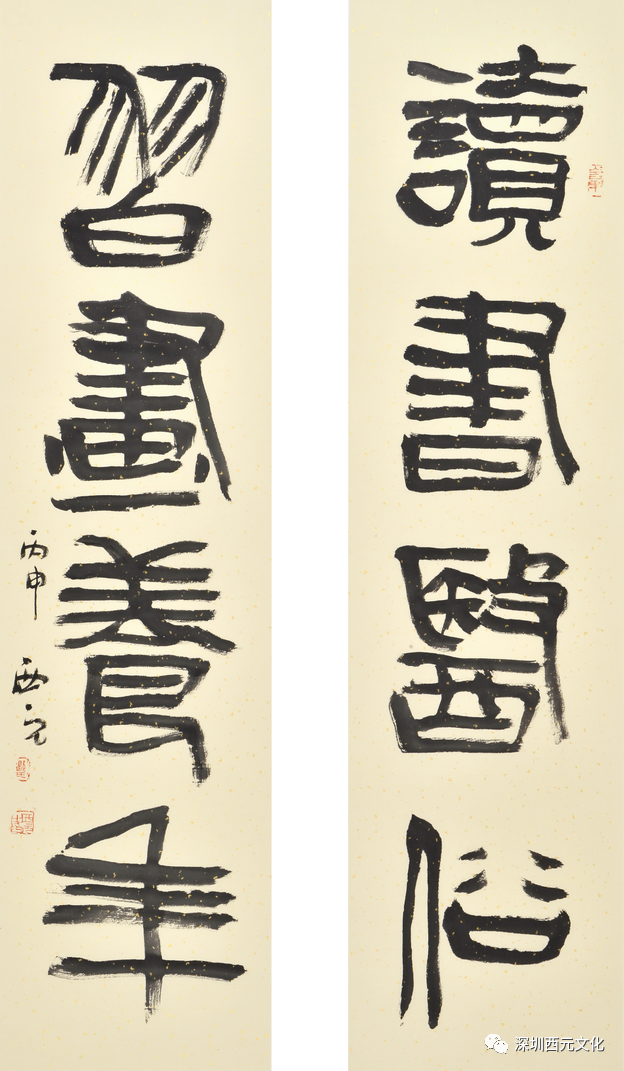 讀書醫俗
習畫養年
丙申 西元
深圳西元文化